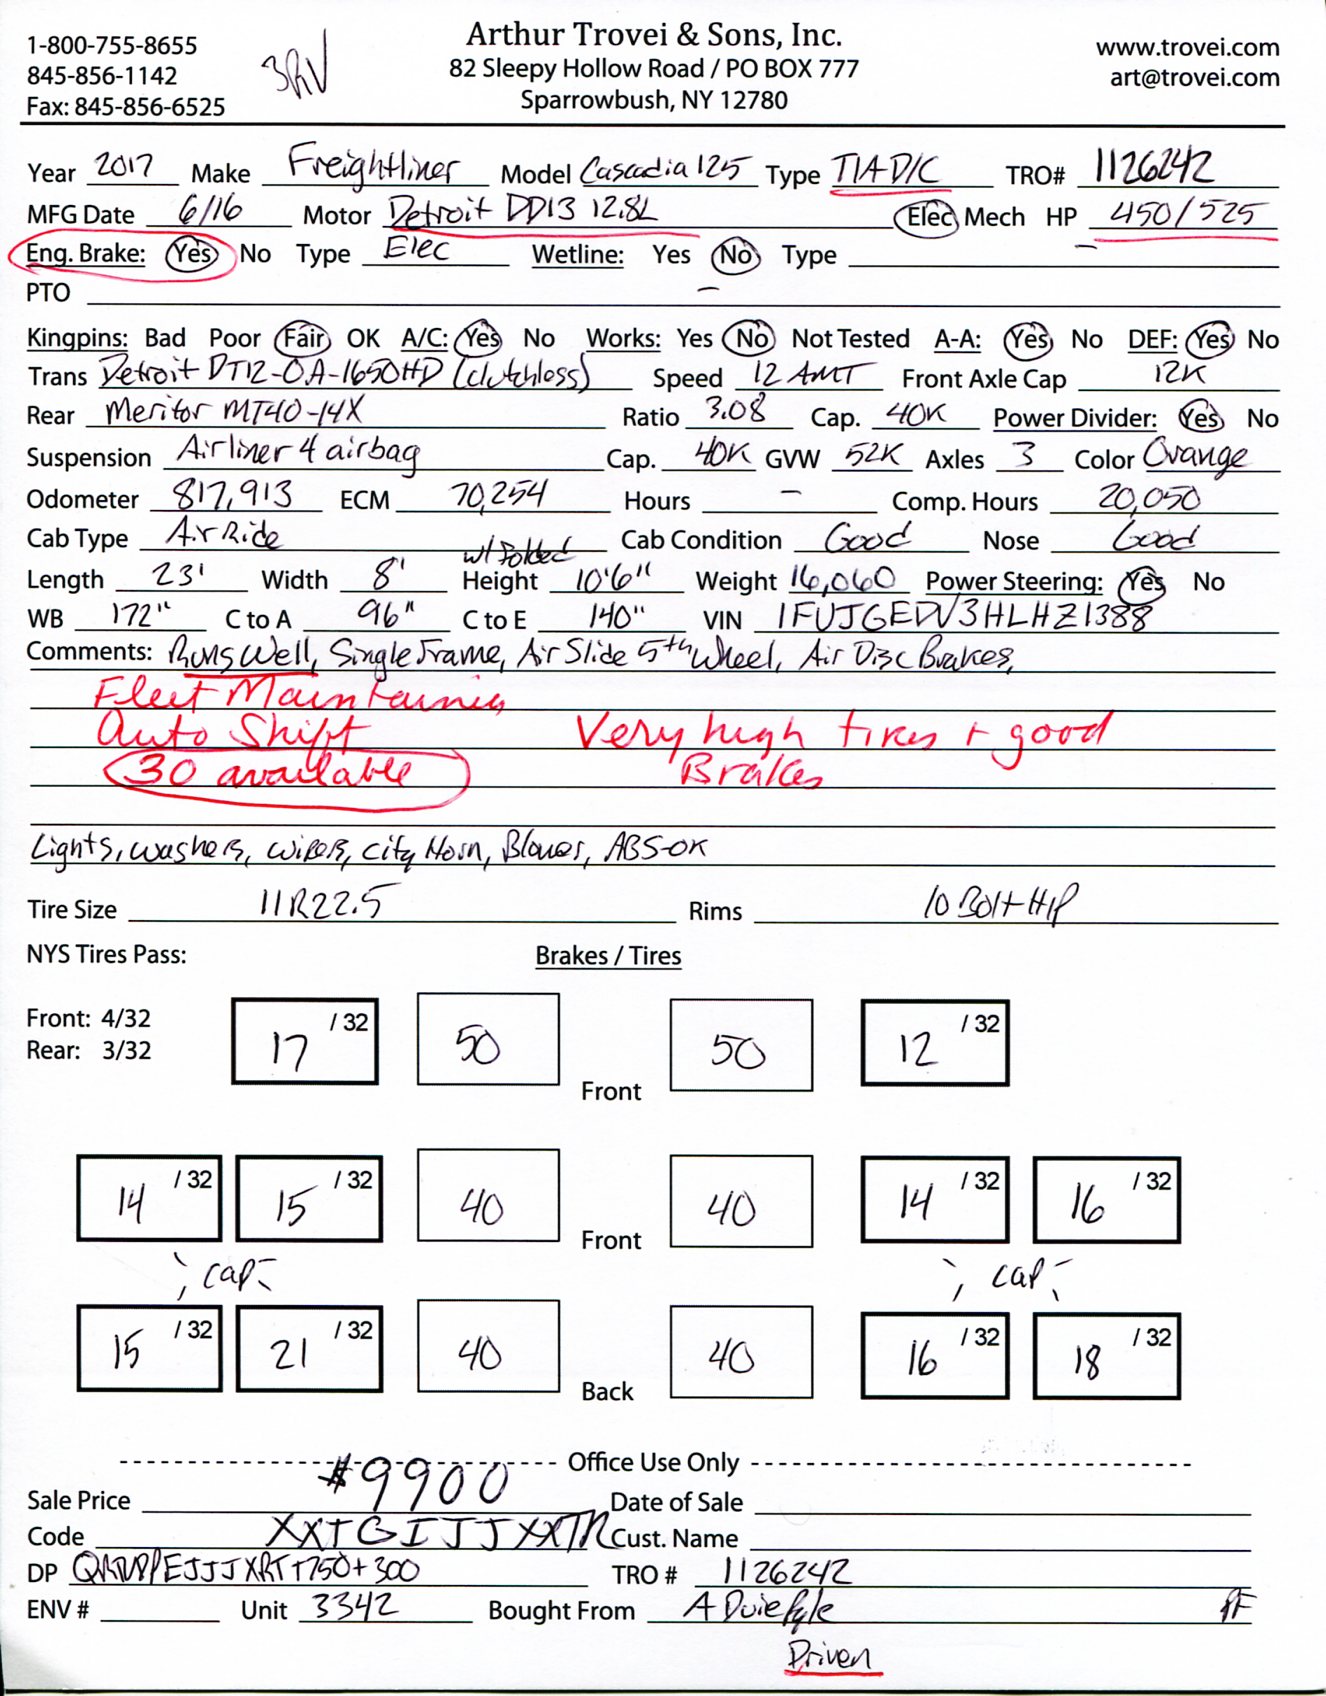 1-800-755-8655
845-856-1142
Fax: 845-856-6525
Arthur Trovei & Sons, Inc.
82 Sleepy Hollow Road / PO BOX 777
Sparrowbush, NY 12780
www.trovei.com
art@trovei.com
Year 2017 Make Freightliner Model Cascadia 125 Type TIA D/C TRO# 1126242
MFG Date 6/16 Motor Detroit DD13 12.8L Elec Mech HP 450/525
Eng. Brake: Yes No Type Elec Wetline: Yes No Type
PTO
Kingpins: Bad Poor Fair OK A/C: Yes No Works: Yes No Not Tested A-A: Yes No DEF: Yes No
Trans Detroit DT12-OA-1650HD (clutchless) Speed 12 AMT Front Axle Cap 12K
Rear Meritor MT40-14X Ratio 3.08 Cap. 40K Power Divider: Yes No
Suspension Airliner 4 airbag Cap. 40K GVW 52K Axles 3 Color Orange
Odometer 817,913 ECM 70,254 Hours - Comp. Hours 20,050
Cab Type Air Ride Cab Condition Good Nose Good
Length 23' Width 8' w/ Folded Height 10'6" Weight 16,060 Power Steering: Yes No
WB 172" C to A 96" C to E 140" VIN 1FUJGEDV3HLHZ1388
Comments: Runs Well, Single Frame, Air Slide 5th Wheel, Air Disc Brakes,
Fleet Maintained
Auto Shift Very high tires + good
30 available Brakes
Lights, washers, wipers, city Horn, Blower, ABS-OK
Tire Size 11R22.5 Rims 10 Bolt HP
NYS Tires Pass: Brakes / Tires
Front: 4/32
Rear: 3/32
17 /32 50 Front 50 12 /32
14 /32 15 /32 40 Front 40 14 /32 16 /32
cap cap
15 /32 21 /32 40 Back 40 16 /32 18 /32
Office Use Only
Sale Price $9900 Date of Sale
Code Cust. Name
DP TRO # 1126242
ENV # Unit 3342 Bought From A Duie Pyle PF
Driven